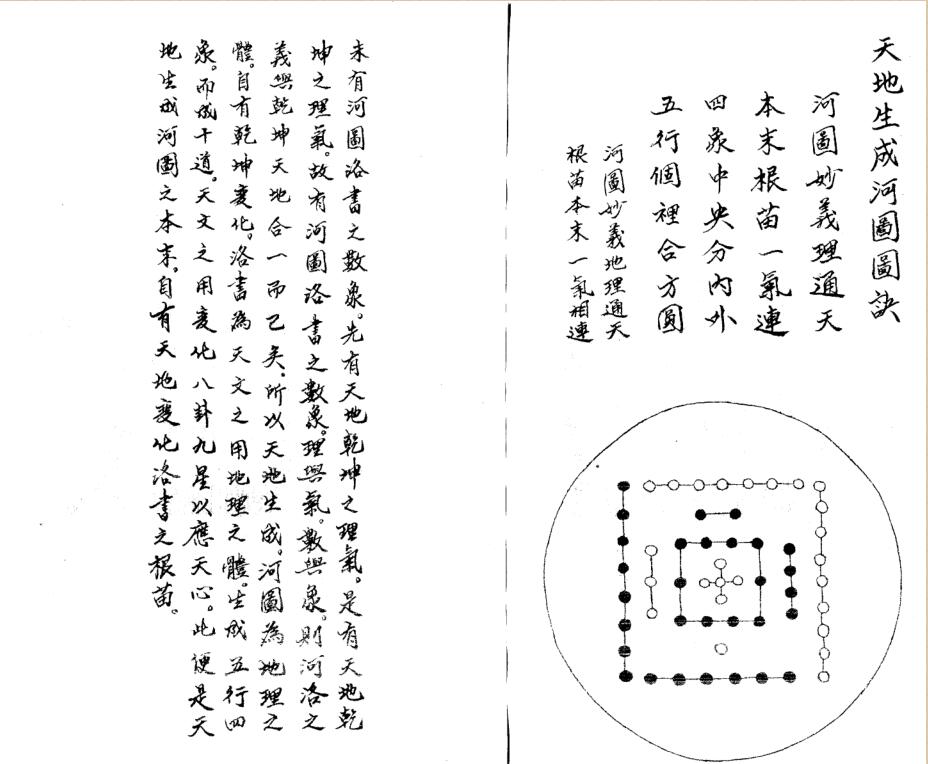 天地生成河圖圖訣
河圖妙義理通天
本末根苗一氣連
四象中央分內外
五行個裡合方圓
河圖妙義地理通天
根苗本末一氣相連
未有河圖洛書之數象。先有天地乾坤之理氣。是有天地乾
坤之理氣。故有河圖洛書之數象。理與氣。數與象。則河洛之
義與乾坤天地合一而已矣。所以天地生成。河圖為地理之
體。自有乾坤變化。洛書為天文之用地理之體。生成五行四
象。而成十道。天文之用變化八卦九星以應天心。此便是天
地生成河圖之本末。自有天地變化洛書之根苗。